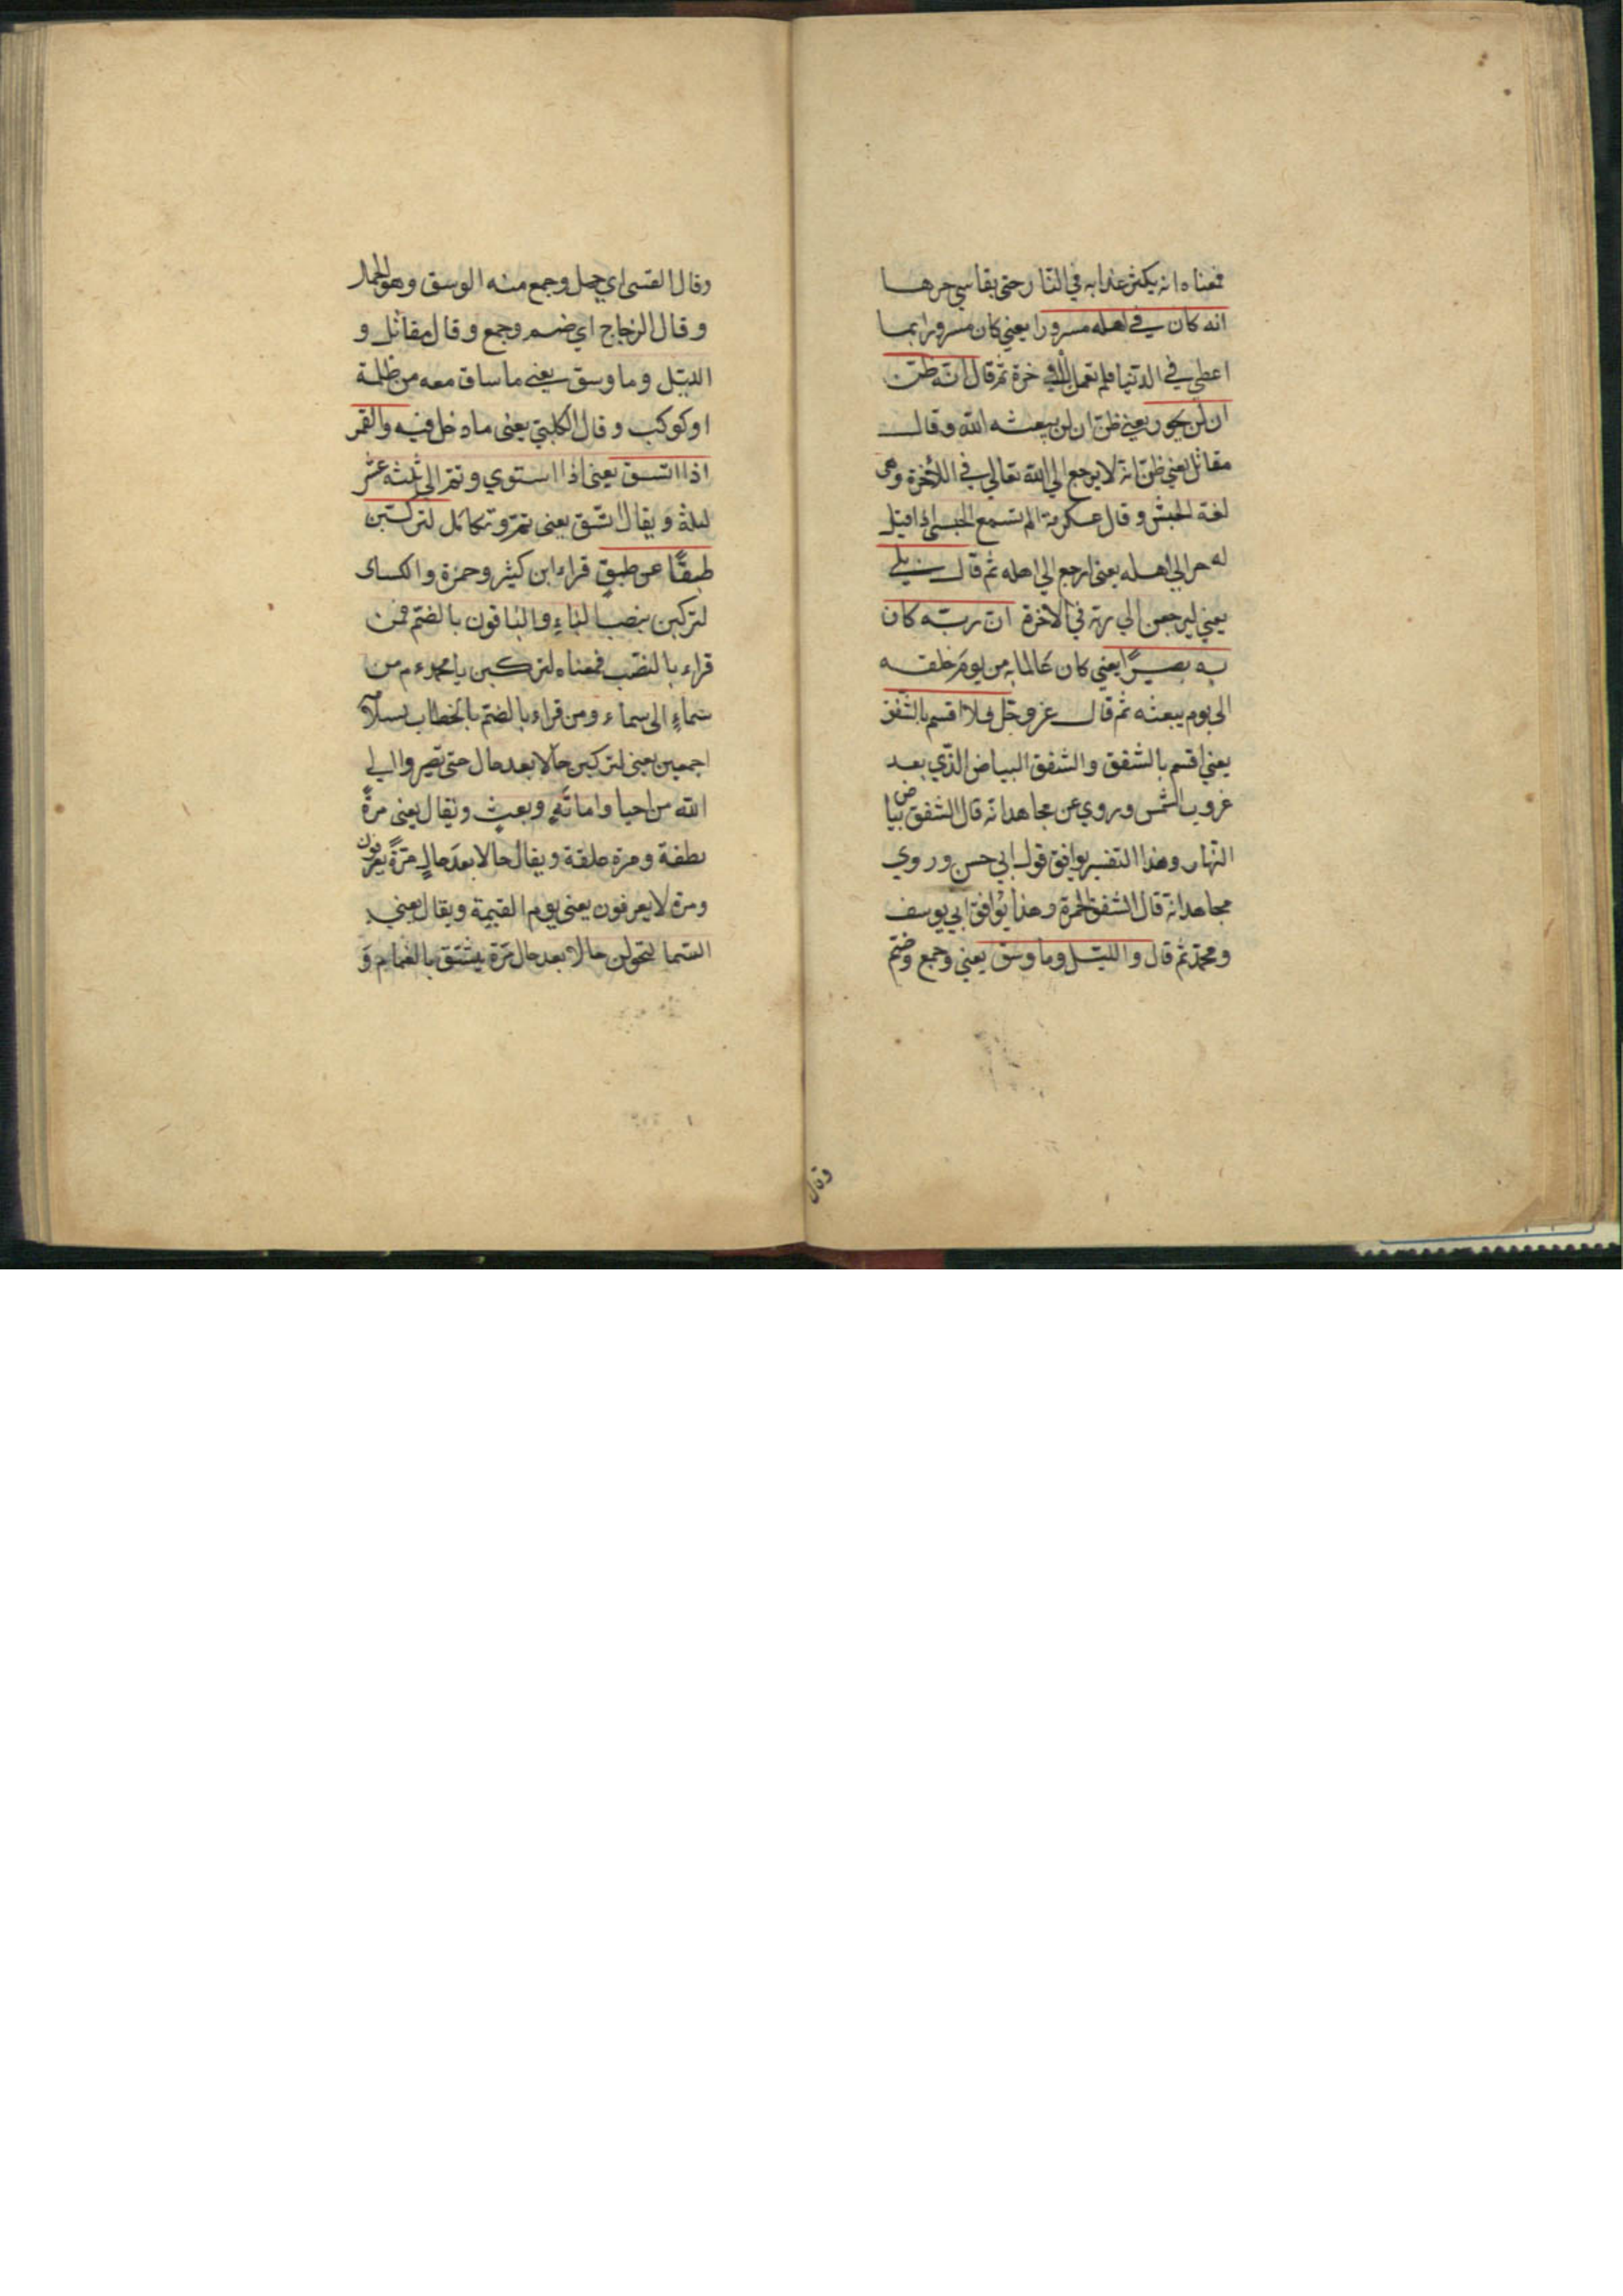 فمعناه انه يكثر عذابه في النار حتى يقاسي حرها
انه كان في اهله مسرورا يعني كان مسرورا بما
اعطي في الدنيا فلم يعمل للاخرة ثم قال انه ظن
ان لن يحور يعني ظن ان لن يبعثه الله وقال
مقاتل يعني ظن انه لا يرجع الي الله تعالي في الاخرة وهى
لغة الحبش وقال عكرمة الم تسمع الحبشي اذا قيل
له حر الي اهله يعني ارجع الي اهله ثم قال بلي
يعني ليرجعن الي ربه في الآخرة ان ربه كان
به بصيرًا يعني كان عالما به من يوم خلقه
الي يوم يبعثه ثم قال عز وجل فلا اقسم بالشفق
يعني اقسم بالشفق والشفق البياض الذي بعد
غروب الشمس وروي عن مجاهد انه قال الشفق بياض
النهار وهذا التفسير يوافق قول ابي حسن وروي
مجاهد انه قال الشفق الحمرة وهذا يوافق ابي يوسف
ومحمد ثم قال والليل وما وسق يعني وجمع وضم
وقال
وقال القتبى اي حمل وجمع منه الوسق وهو الحمل
وقال الزجاج اي ضم وجمع وقال مقاتل و
الليل وما وسق يعنى ما ساق معه من ظلمة
او كوكب وقال الكلبي يعنى ما دخل فيه والقمر
اذا اتسق يعنى اذا استوي وتم الى ثلثة عشر
ليلة ويقال اتسق يعنى تم وتكامل لتركبن
طبقًا عن طبقٍ قراء ابن كثير وحمزة والكساى
لتركبن بنصب الباء والباقون بالضم فمن
قراء بالنصب فمعناه لتركبن يا محمد عم من
سماءٍ الى سماء ومن قراء بالضم بالخطاب
اجمعين يعنى لتركبن حالا بعد حال حتى تصيروا الي
الله من احيا واماتة وبعث ويقال يعنى مرةً
نطفة ومرة علقة ويقال حالا بعد حالٍ مرةً يعرفون
ومرة لا يعرفون يعنى يوم القيمة ويقال يعني
السما لتحولن حالا بعد حال مرة يتشقق بالغمام وَ